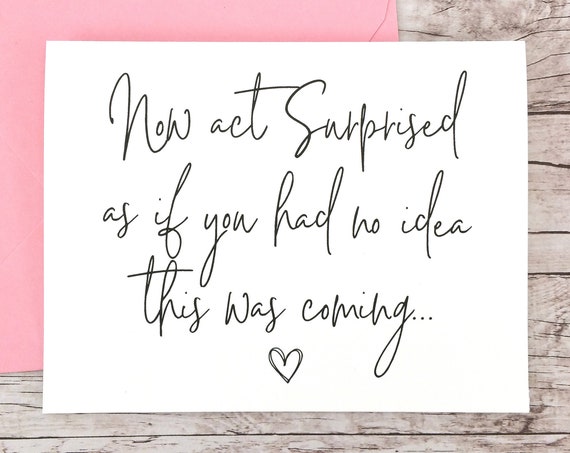 Now act Surprised
as if you had no idea
this was coming...